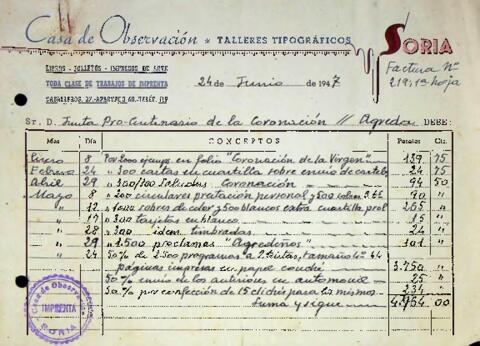 Casa de Observación * TALLERES TIPOGRÁFICOS
SORIA
LIBROS - FOLLETOS - IMPRESOS DE ARTE
TODA CLASE DE TRABAJOS DE IMPRENTA
CABALLEROS 27.-APARTADO 48.-TELÉF. 119
Factura Nº
219, 1ª hoja
24 de Junio de 1947
Sr. D. Junta Pro-Centenario de la Coronación // Agreda DEBE:
Mes Día CONCEPTOS
Enero 8 Por 2000 ejemp. en folio "Coronación de la Virgen" 139 75
Febrero 24 " 300 cartas en cuartilla sobre envío de 24 75
Abril 29 " 300/100 Saludas Coronación 94 50
Mayo 8 " 200 circulares prestación personal y 500 90 "
" 12 " 1000 sobres de color y 500 blancos extra cuartilla 265 "
" 17 " 300 tarjetas en blanco 15 "
" 28 " 300 idem. timbradas 24 "
" 29 " 1.500 proclamas "Agredeños" 101 "
" 24 50% de 2.500 programas a 2 tintas, tamaño 44
páginas impresas en papel couché 3.750 "
50% envío de los anteriores en automóvil 25 "
50% por confección de 15 clichés para los mismos 234 "
Suma y sigue 00
Casa de Observación
IMPRENTA
SORIA